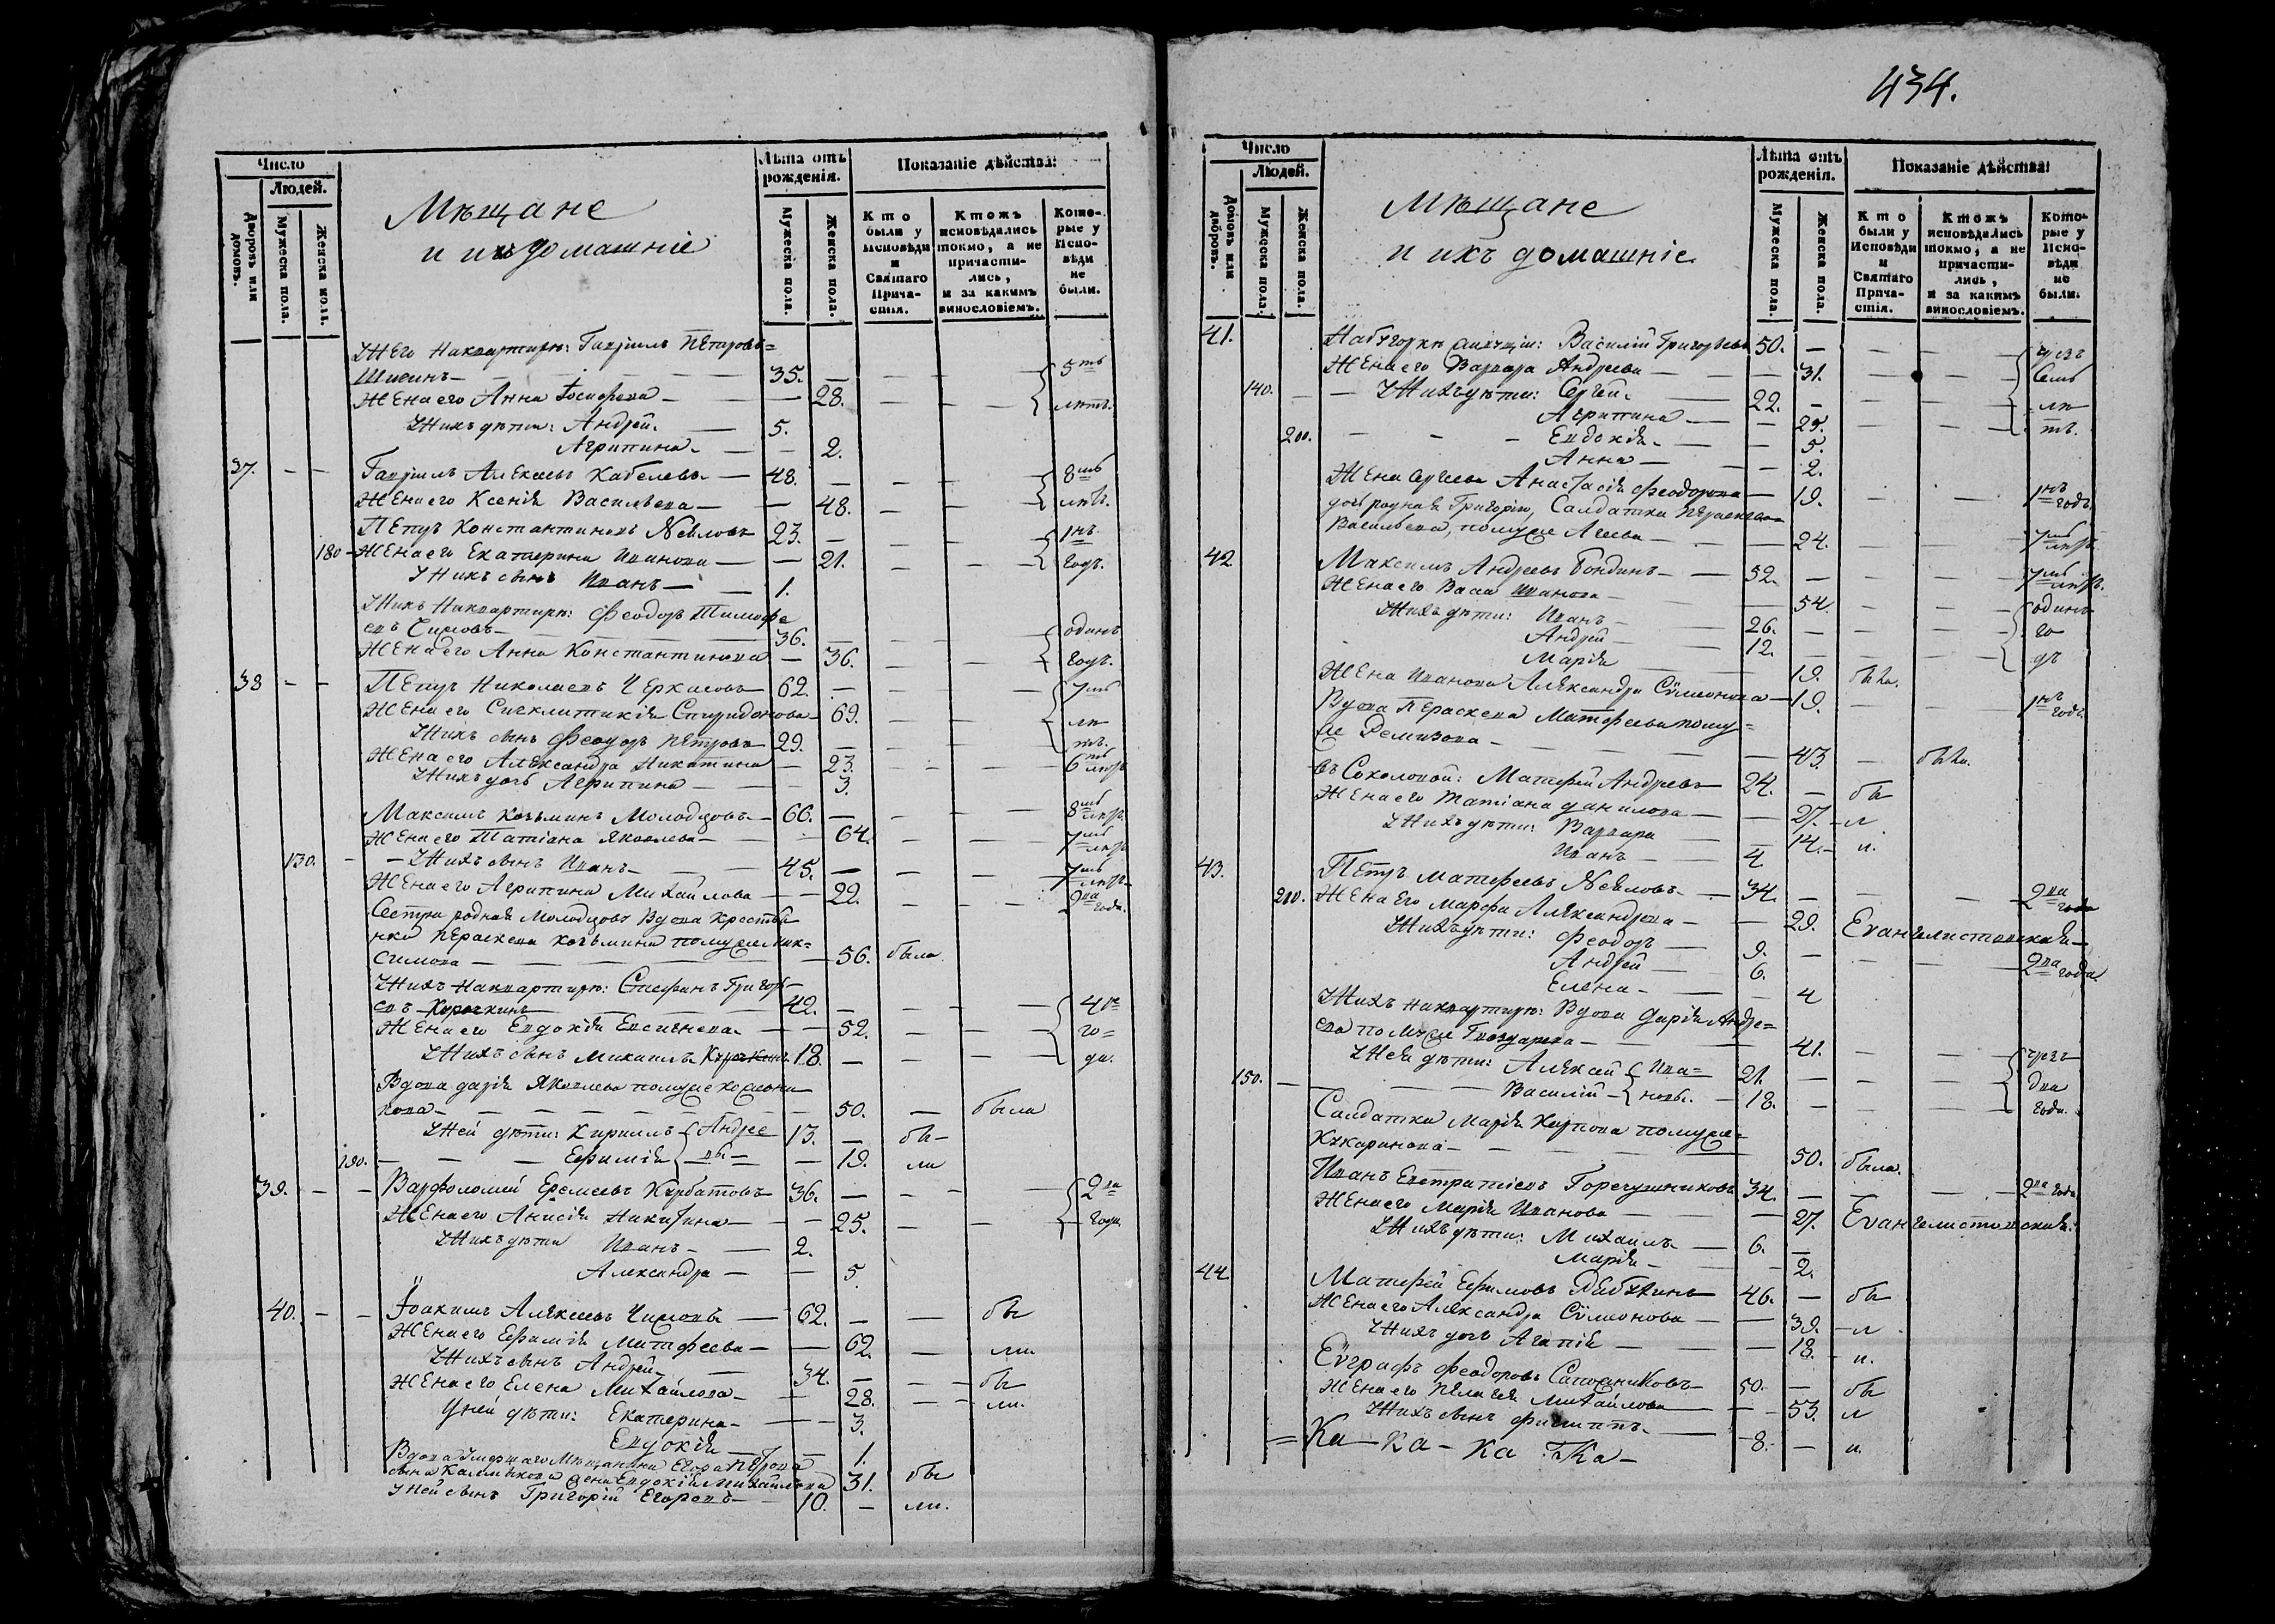 434.
Число
Людей.
Дворовъ или домовъ.
Мужеска пола.
Женска пола.
Мѣщане
и ихъ домашніе
Лѣта отъ рожденія.
Мужеска пола.
Женска пола.
Показаніе дѣйства:
Кто были у Исповѣди и Святаго Прича-стія.
Ктожъ исповѣдались токмо, а не причасти-лись, и за какимъ винословіемъ.
Кото-рые у Испо-вѣди не были.
Гаврiилъ Петровъ=
35. — — — — 5ть
Жена его Анна Iосифова — — 28. — — — лѣтъ.
У нихъ дѣти: Андрей — 5.
Агрипина — — 2.
37. — — Гаврiилъ Алексѣевъ — 48. — — — 8мь
Жена его Ксенія Васильева — — 48. — — лѣтъ.
Петръ Константиновъ 23. — — — 1нъ
180 — Жена его Екатерина Иванова — — 21. — — годъ.
У нихъ сынъ Иванъ — — 1.
Феодоръ Тимофе
евъ — 36. — — — одинъ
Жена его Анна Константинова — 36. — — годъ.
38 — — Петръ Николаевъ Черкасовъ 62. — — — 7мь
Жена его Синклитикія Спиридонова — 69. — — лѣ
У нихъ сынъ Феодоръ Петровъ 29. — — — тъ.
Жена его Александра Никитина — 23. — — — 6ть лѣтъ
У нихъ дочь Агрипина — — 3.
Максимъ Козьминъ Молодцовъ — 66. — — — 8мь лѣтъ.
Жена его Татіана Яковлева — — 64. — — 7мь лѣтъ
130. — — У нихъ сынъ Иванъ — — 45. — — — 7мь лѣтъ
Жена его Агрипина Михайлова — — 22. — — — 2ва года.
Сестра родная Молодцова Вдова крестья
нка Параскева Козьмина по мужѣ Мак=
симова — — — — 56. была
У нихъ на квартирѣ: Стефанъ Григорь-
евъ 42. — — — 4ре
Жена его Евдокія — — 52. — — — го=
У нихъ сынъ Михаилъ 18. — — — да.
Вдова Дарія Яковлева по мужѣ
кова — — — — 50. — была
У ней дѣти: Кириллъ { Андрее 13. — бы-
190. — — — Ефимія { вы — — 19. ли
39. — — Варфоломей Еремеевъ Курбатовъ 36. — — — 2ва
Жена его Анисія Никитина — — 25. — — года
У нихъ дѣти Иванъ — — 2.
Александра — — 5
40. — — Iоакимъ Алексѣевъ — 62. — — бы
Жена его Ефимія Матфеева — — 62. — ли.
У нихъ сынъ Андрей — 34. — — бы
Жена его Елена Михайлова — — 28. — — ли.
У ней дѣти: Екатерина — — 3.
Евдокія — — 1.
Вдова умершаго Мѣщанина Егора Петрова
сына жена Евдокія Михайлова 31. бы
У ней сынъ Григорій Егоровъ — 10. — ли.
Число
Людей.
Домовъ или дворовъ.
Мужеска пола.
Женска пола.
Мѣщане
и ихъ домашніе
Лѣта отъ рожденія.
Мужеска пола.
Женска пола.
Показаніе дѣйства:
Кто были у Исповѣди и Святаго Прича-стія.
Ктожъ исповѣдались токмо, а не причасти-лись, и за какимъ винословіемъ.
Кото-рые у Испо-вѣди не были.
41. Василій Григорьевъ 50. — — — чрезъ
Жена его Варвара Андреева — — 31. — — семь
140. — — У нихъ дѣти: Сергей — 22. — — — лѣ
Агрипина — — 25. — — тъ.
200. — — — Евдокія — — 5.
Анна — — 2.
Жена Сергеева Анастасія Феодорова — 19. — — 1нъ годъ
Григорію, Салдатка Параскева
Васильева, по мужѣ — — 24. — — 7мь лѣтъ.
42. Максимъ Андреевъ Бондинъ — 52. — — — 7мь лѣтъ.
Жена его Васса Иванова — — 54. — — одинъ
У нихъ дѣти: Иванъ — 26. — — — го
Андрей — 12. — — — дъ
Марія — 19. была.
Жена Иванова Александра Сѵмеонова — 19. — — 1нъ годъ.
Вдова Параскева Матфеева по му=
жѣ Ремизова — — — 43. — была.
въ Соколовой: Матфей Андреевъ 24. — бы
Жена его Татіана Данилова — — 27. — л
У нихъ дѣти: Варвара — 14. — и.
Иванъ — — 4.
43. Петръ Матфеевъ 34. — — — 2ва года
210. Жена его Марфа Александрова — — 29. Евангелистовская
У нихъ дѣти: Феодоръ — 9. — — — 2ва года
Андрей — 6.
Елена — — 4
У нихъ на квартирѣ: Вдова Дарія Андре=
ева по мужѣ — — 41. — — чрезъ
У ней дѣти: Алексей { Ива= 21. — — — два
150. — — Василій — { новы. — 18. — — — года.
Салдатка Марія Карпова по мужѣ=
— — — 50. была.
Иванъ Евстратіевъ 34. — — — 2ва года
Жена его Марія Иванова — — 27. Евангелистовская.
У нихъ дѣти: Михаилъ — 6. —
Марія — — 2.
44 Матфей Ефимовъ 46. — бы
Жена его Александра Сѵмеонова — — 39. — л
У нихъ дочь Агапія — — 18. — и.
Еѵграфъ Феодоровъ Сапожниковъ 50. — бы
Жена его Пелагея Михайлова — — 53. л
У нихъ сынъ Филиппъ — 8. — и.